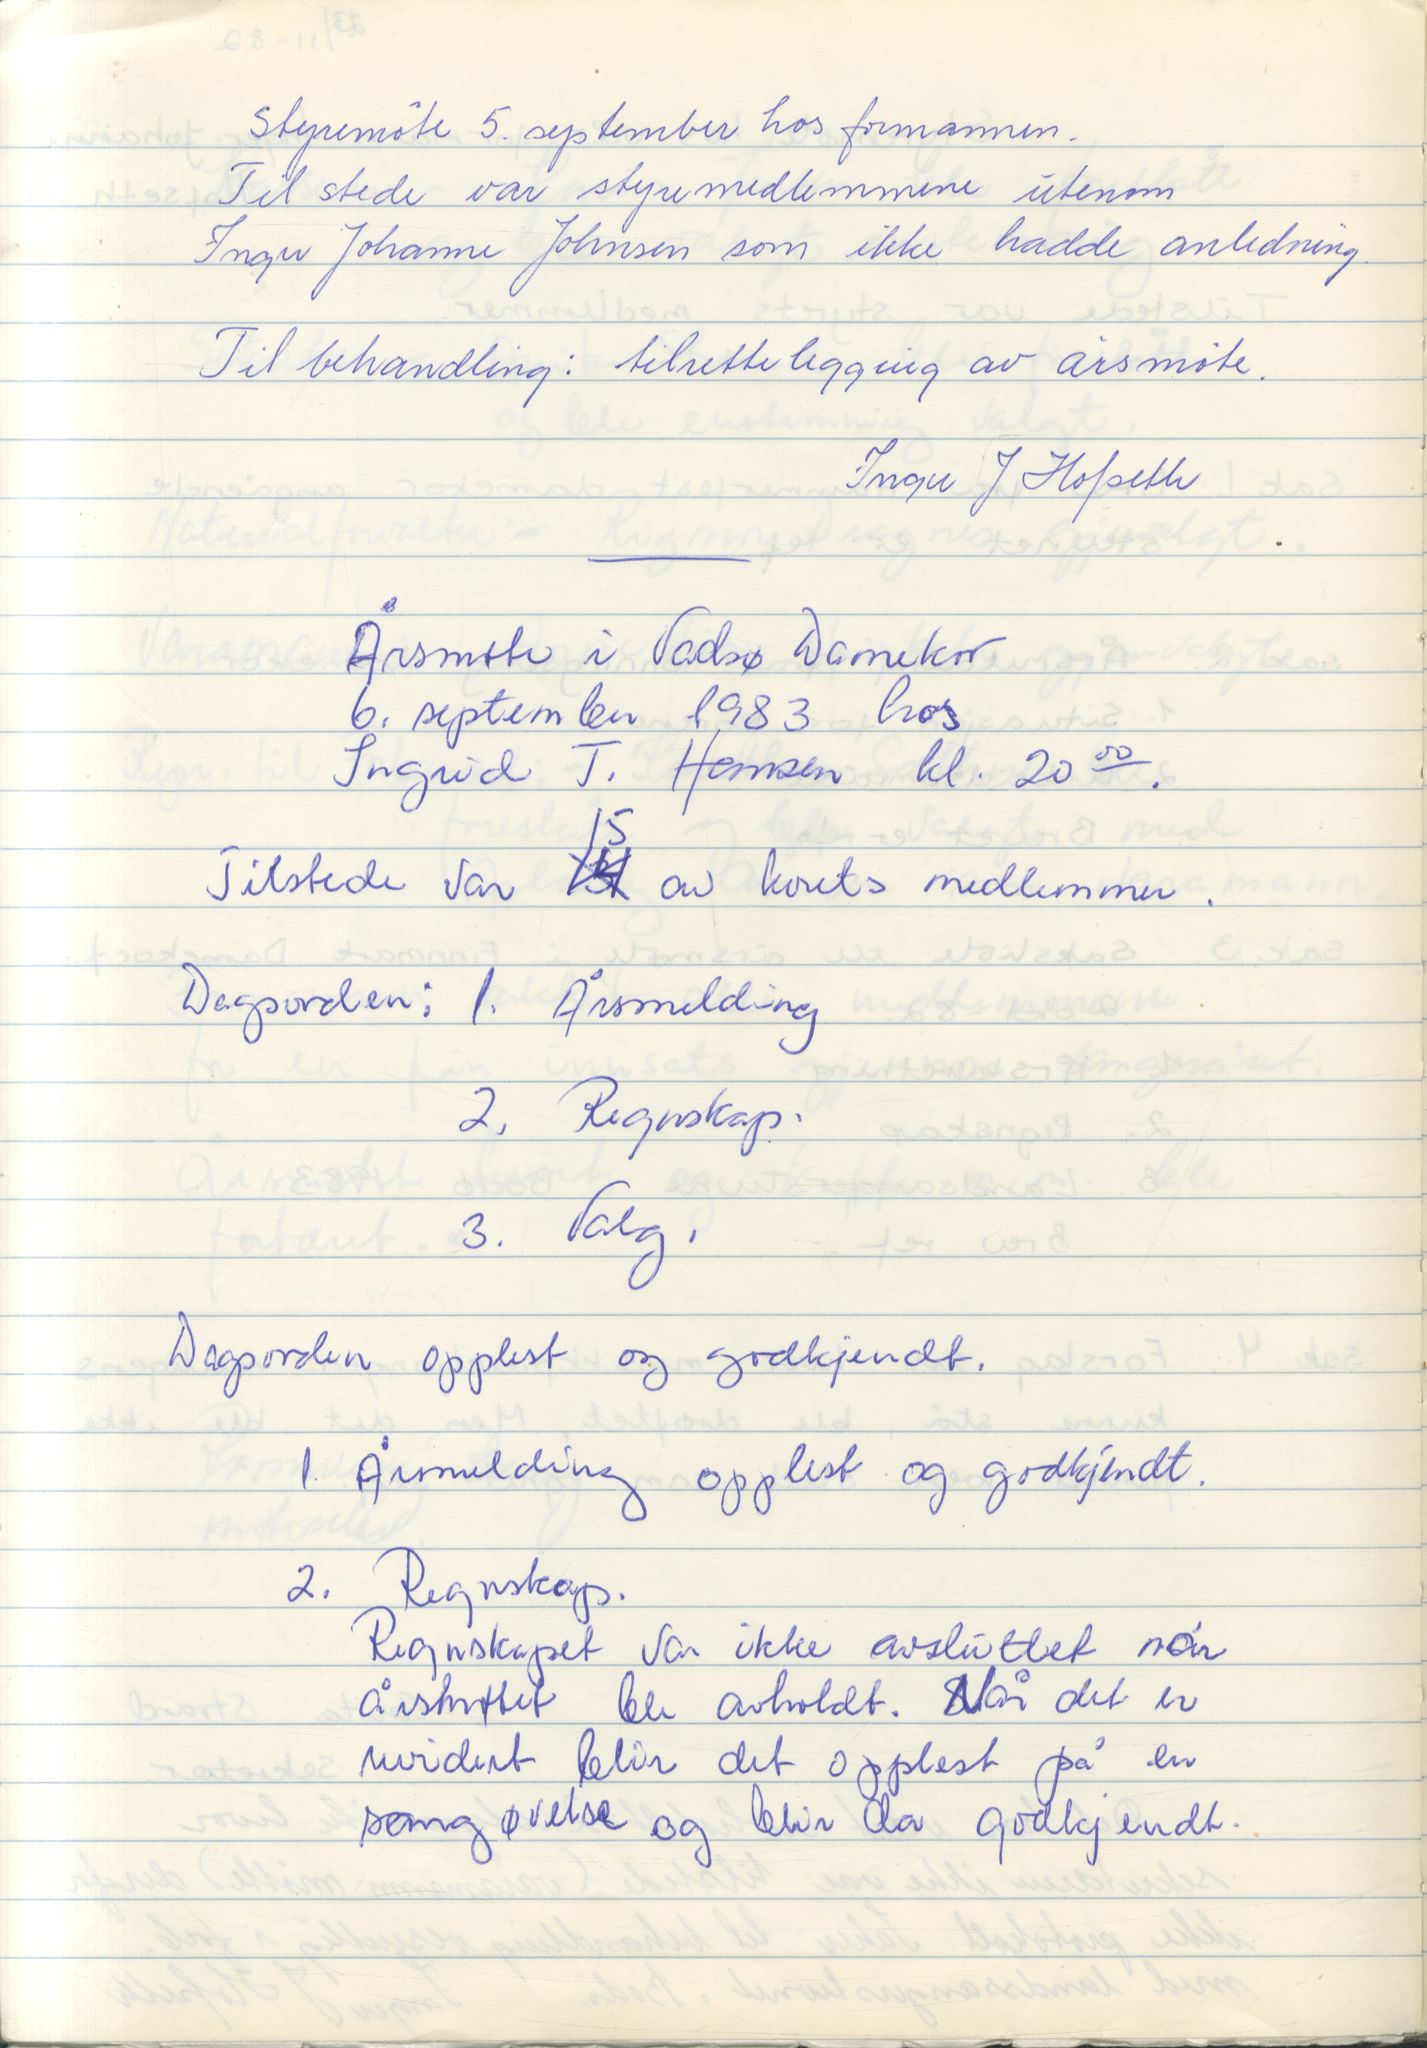 Styremöte 5. september hos formannen.
Til stede var styremedlemmene utenom
Inger Johanne Johnsen som ikke hadde anledning.
Til behandling: tilrettelegging av årsmöte.
Inger J Hofseth
Årsmøte i Vadsø Damekor
6. september 1983 hos
Ingrid T. Hansen kl. 20 00.
15
Tilstede var av korets medlemmer.
Dagsorden: 1. Årsmelding
2. Regnskap.
3. Valg.
Dagsorden opplest og godkjendt.
1. Årsmelding opplest og godkjendt.
2. Regnskap.
Regnskapet var ikke avsluttet når
årsmøtet ble avholdt. Når det er
revidert blir det opplest på en
sangøvelse og blir da godkjendt.